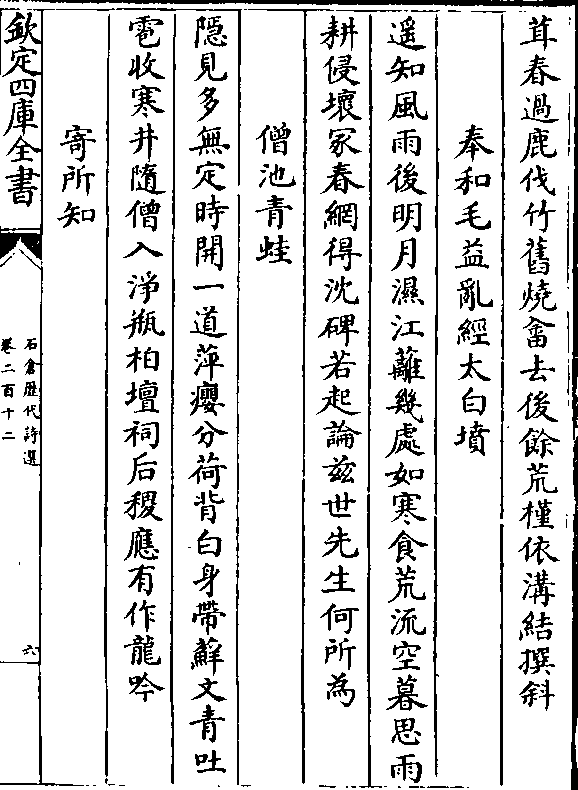 茸春過鹿伐竹舊燒畬去後餘荒槿依溝結撰斜
奉和毛益亂經太白墳
遥知風雨後明月濕江蘺幾處如寒食荒流空暮思雨
耕侵壞冢春網得沈碑若起論兹世先生何所為
僧池青蛙
隱見多無定時開一道萍瘿分荷背白身帶蘚文青吐
雹收寒井隨僧入淨瓶柏壇祠后稷應有作龍吟
寄所知
欽定四庫全書
石倉歴代詩選
卷二百十二
六